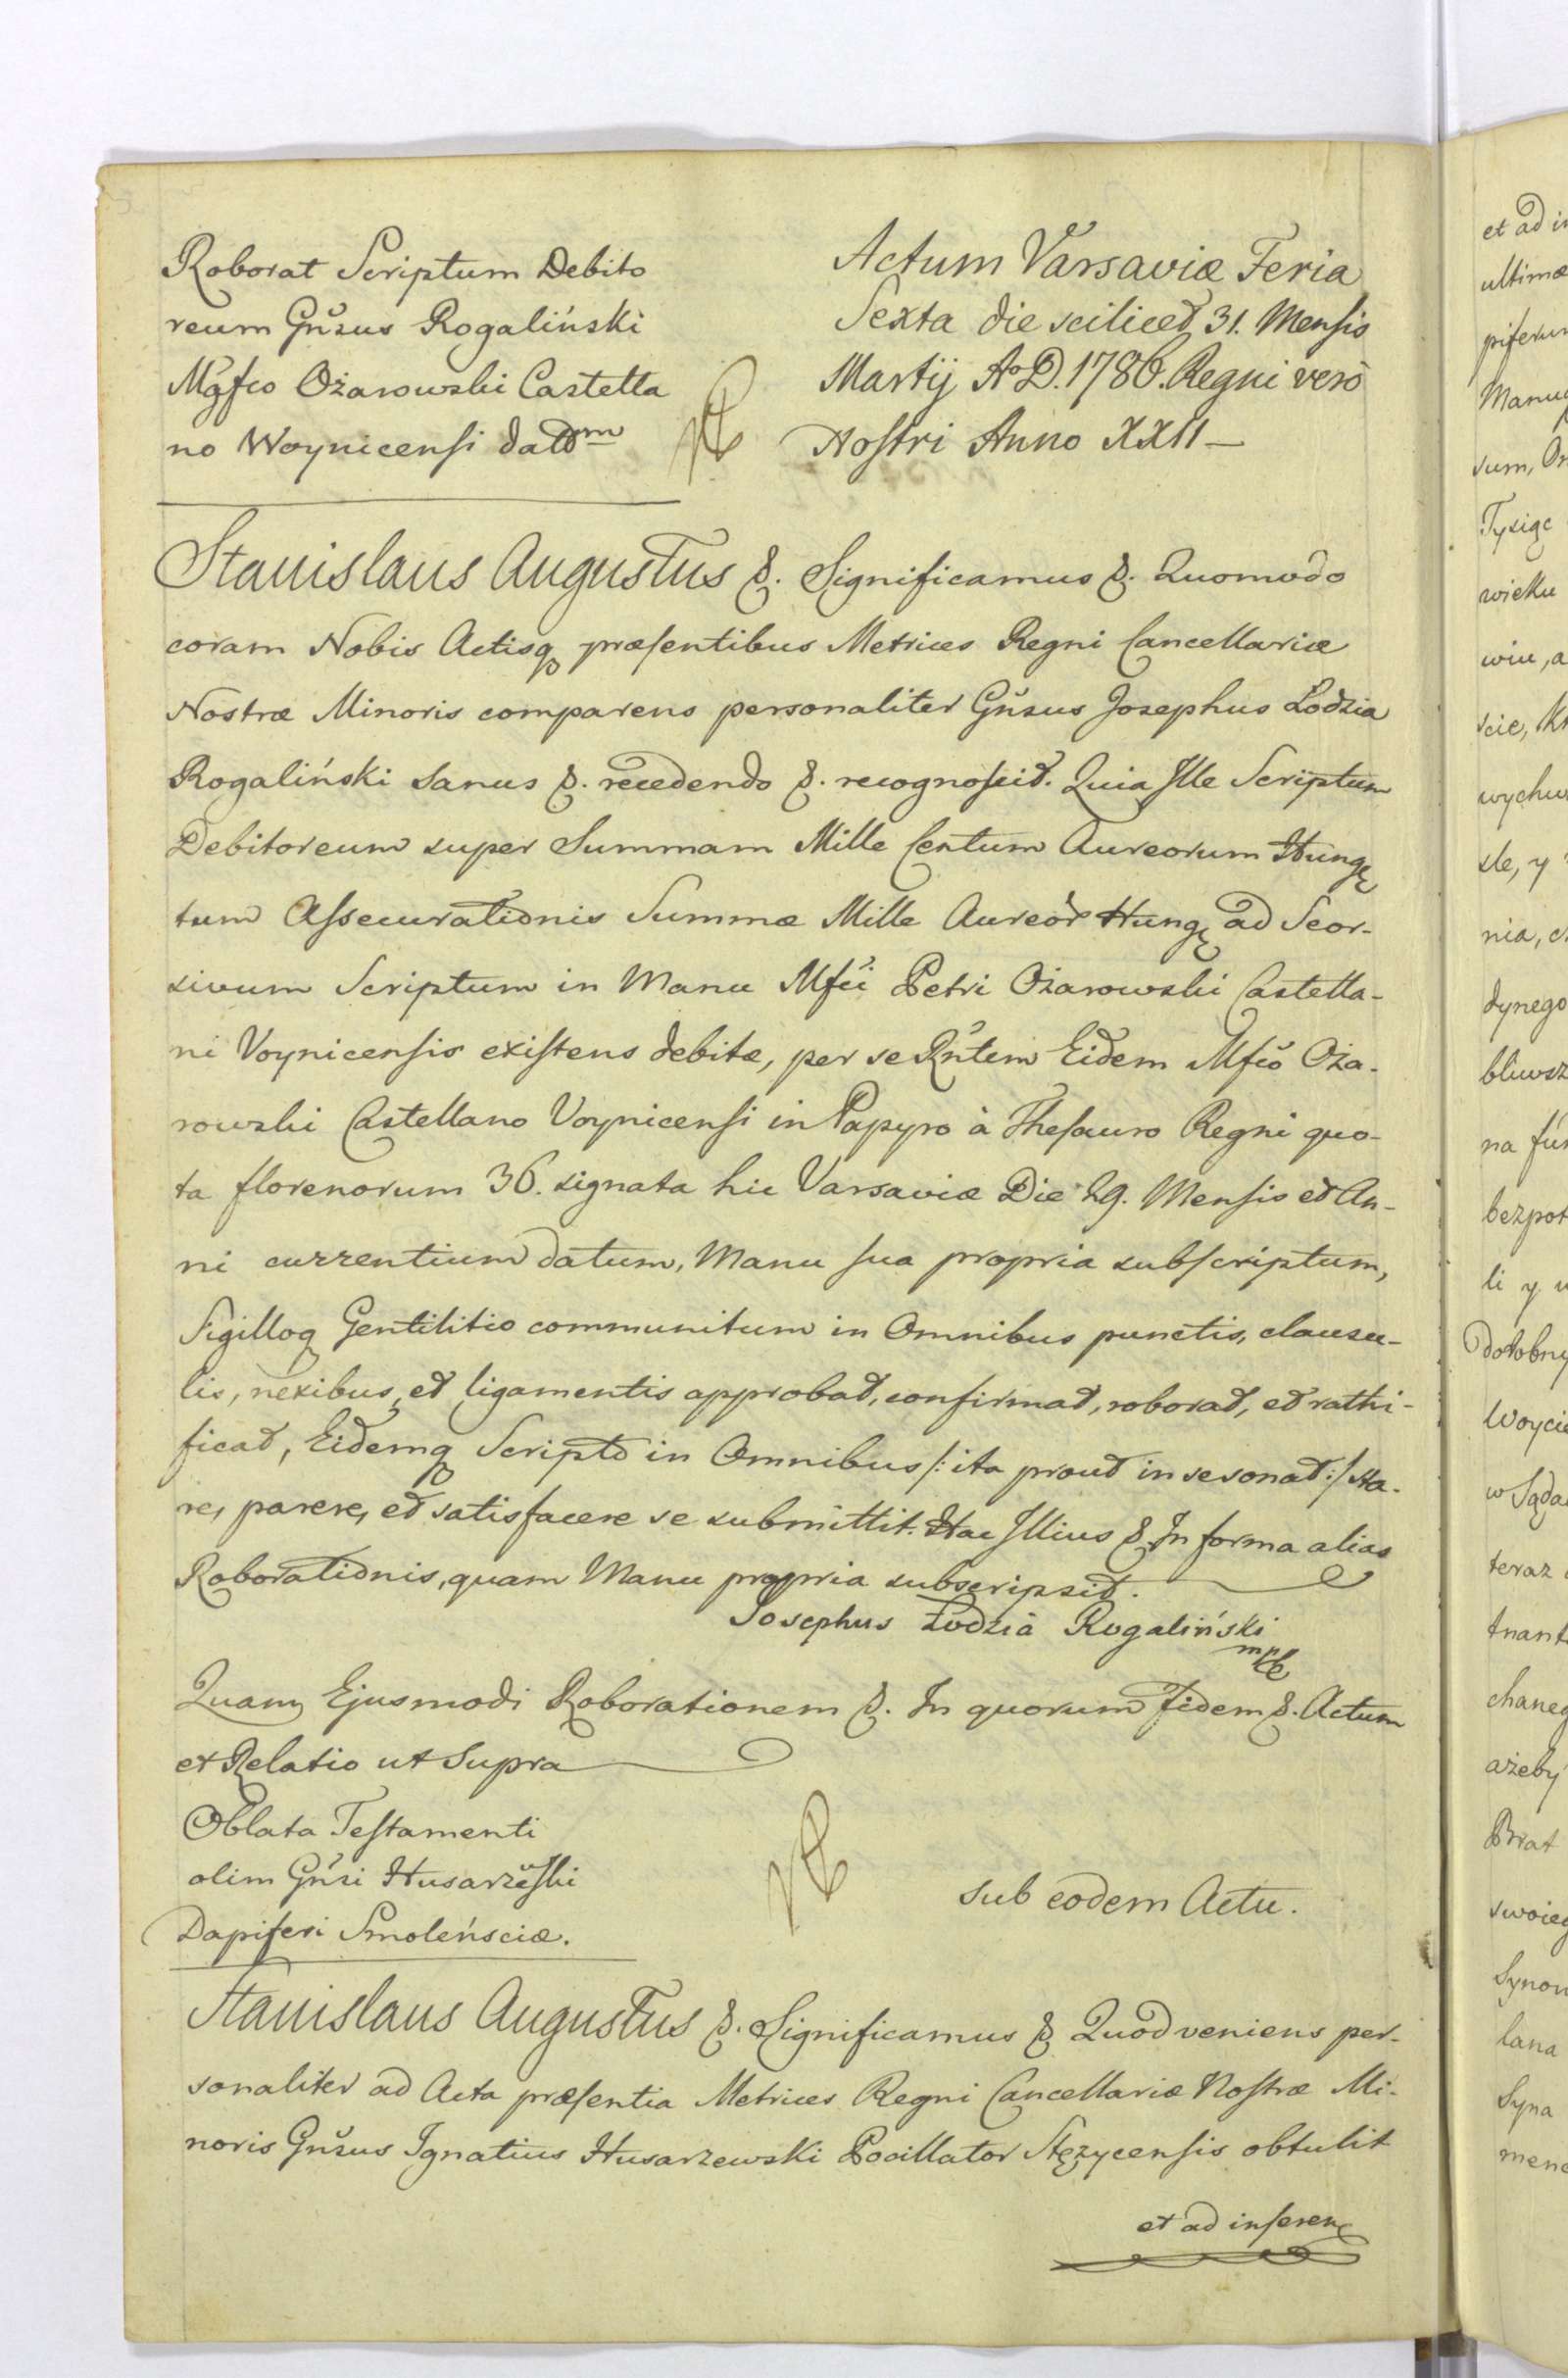 Roborat Scriptum Debito
reum Gnsus Rogaliński
Mgfco Ożarowski Castella
no Woynicensi datm
Actum Varsaviæ Feria
Sexta die scilicet 31. Mensis
Martij Ao D. 1786. Regni verò
Nostri Anno XXII
Stanislaus Augustus &. Significamus &. Quomodo
coram Nobis Actisq præsentibus Metrices Regni Cancellariæ
Nostræ Minoris comparens personaliter Gnsus Josephus Lodzia
Rogaliński sanus &. recedendo &. recognoscit. Quia Ille Scriptum
Debitoreum super Summam Mille Centum Aureorum Hung
tum Assecurationis Summæ Mille Aureor Hung ad Seor-
sivum Scriptum in Manu Mfci Petri Ożarowski Castella-
ni Voynicensis existens debitæ, per se Rntem Eidem Mfco Oża-
rowski Castellano Voynicensi in Papyro à Thesauro Regni quo-
ta florenorum 36. signata hic Varsaviæ Die 29. Mensis et An-
ni currentium datum, Manu sua propria subscriptum,
Sigilloq Gentilitio communitum in Omnibus punctis, clausu-
lis, nexibus, et ligamentis approbat, confirmat, roborat, et rathi-
ficat, Eidemq Scripto in Omnibus /: ita prout in se sonat :/ sta-
re, parere, et satisfacere se submittit. Hac Illius &. In forma alias
Roborationis, quam Manu propria subscripsit.
Josephus Łodzia Rogaliński
mpp
Quam Ejusmodi Roborationem &. In quorum fidem &. Actum
et Relatio ut Supra
Oblata Testamenti
olim Gnsi Husarzewski
Dapiferi Smoleńsciæ.
sub eodem Actu.
Stanislaus Augustus &. Significamus & Quod veniens per-
sonaliter ad Acta præsentia Metrices Regni Cancellariæ Nostræ Mi-
noris Gnsus Ignatius Husarzewski Pocillator Stęzycensis obtulit
et ad inseren
et ad in
ultimæ
piferum
Manu
sum, Or
Tysiąc
wieku
wiu, a
scie, Kr
wychw
sle, y
nia, c
dynego
bliwsz
na fun
bezpot
li y w
dotobny
Woycie
w Sąda
teraz
tnant
chaneg
ażeby
Brat
swoieg
Synow
lana
Syna
mene